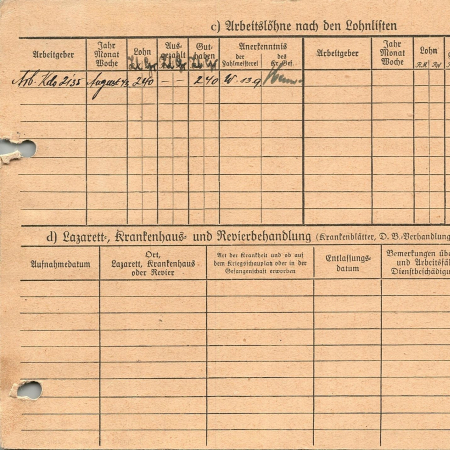 c) Arbeitslöhne nach den Lohnlisten
Arbeitgeber Jahr Monat Woche Lohn Aus-gezahlt Gut-haben Anerkenntnis der Zahlmeisterei des Kr.Gef. Arbeitgeber Jahr Monat Woche Lohn
RM Rpf
Arb. Kdo 2135 August 4 240 – – 240 W 139
d) Lazarett-, Krankenhaus- und Revierbehandlung (Krankenblätter, D. B.-Verhandlung
Aufnahmedatum Ort, Lazarett, Krankenhaus oder Revier Art der Krankheit und ob auf dem Kriegsschauplatz oder in der Gefangenschaft erworben Entlassungs-datum Bemerkungen üb und Arbeitsfä Dienstbeschädig